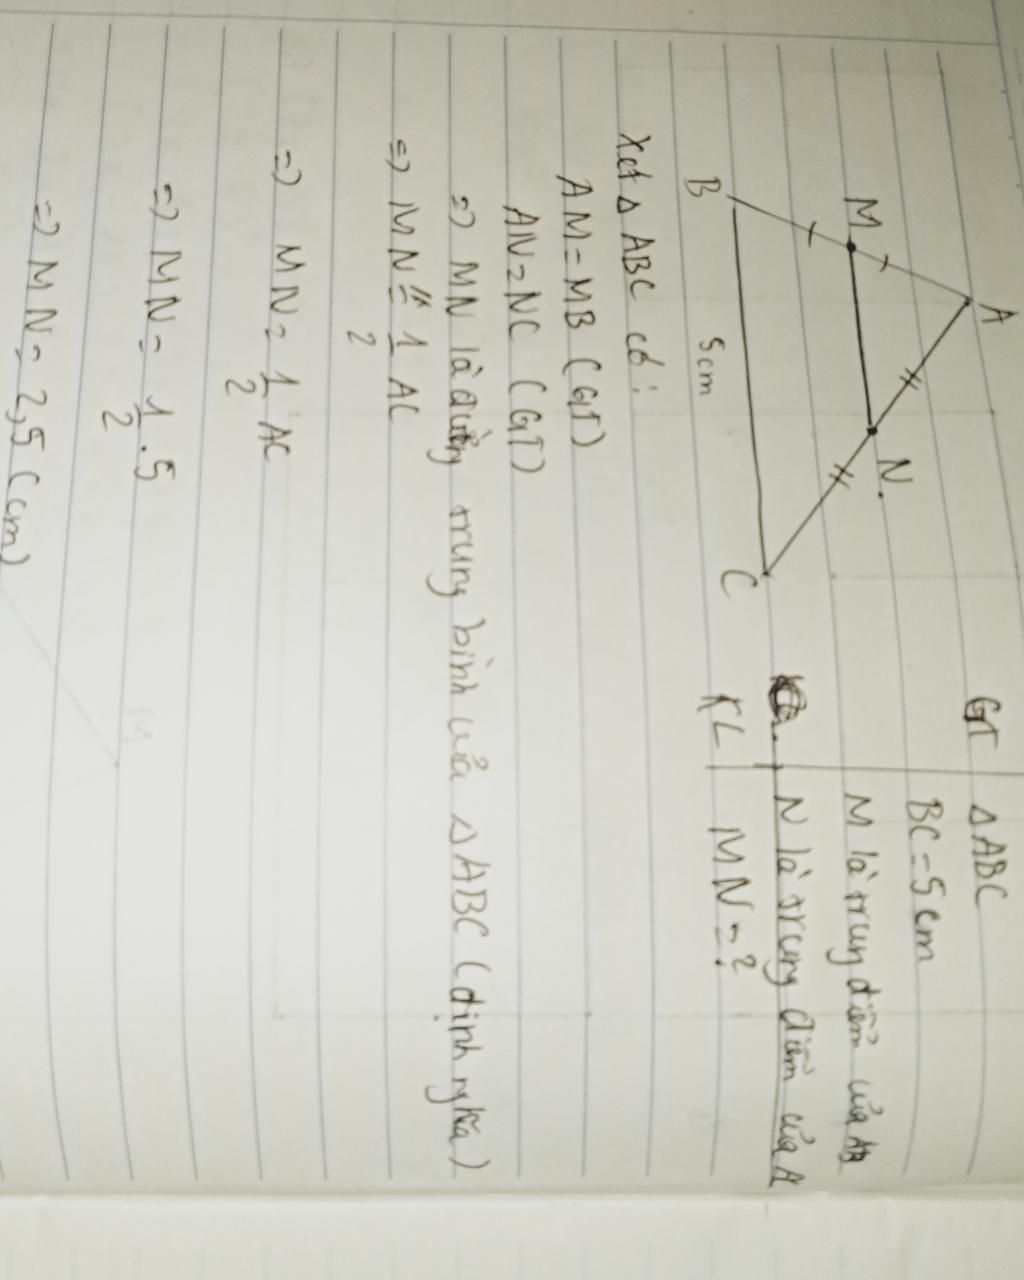 A
M
N.
B
5cm
C
GT
ΔABC
BC = 5cm
M là trung điểm của AB
N là trung điểm của A
KL
MN = ?
Xét Δ ABC có:
AM = MB (GT)
AN = NC (GT)
=> MN là đường trung bình của ΔABC (định nghĩa)
=> MN // = 1/2 AC
=> MN = 1/2 AC
=> MN = 1/2 . 5
=> MN = 2,5 (cm)